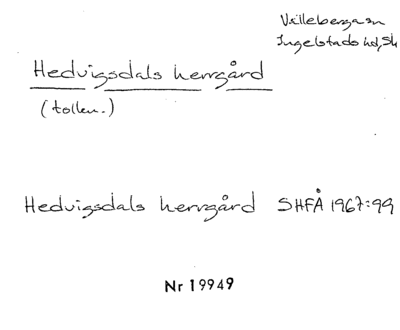 Villeberga sn
Ingelstads hd, Sk
Hedvigsdals herrgård
(tollen.)
Hedvigsdals herrgård SHFÅ 1967:99
Nr 19949